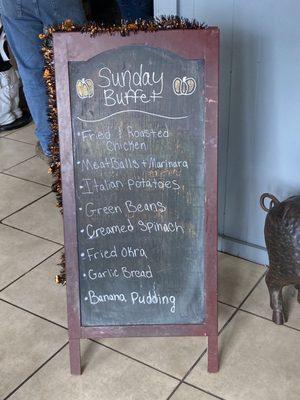 Sunday
Buffet
• Fried & Roasted
Chicken
• MeatBalls + Marinara
• Italian Potatoes
• Green Beans
• Creamed Spinach
• Fried Okra
• Garlic Bread
• Banana Pudding